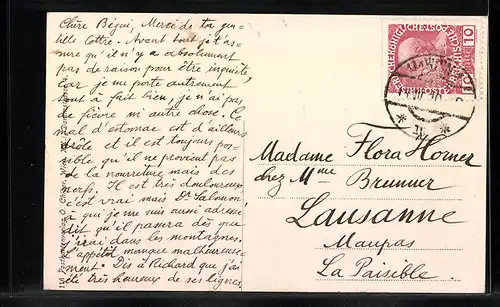 Chère Bégui, Merci de ta gen-
tille lettre. Avant tout je t'as-
sure qu'il n'y a absolument
pas de raison pour être inquiète,
car je me porte autrement
tout à fait bien, je n'ai pas
de fièvre ni autre chose. Ce
mal d'estomac est d'ailleurs
drôle et il est toujours pos-
sible qu'il ne provient pas
de la nourriture mais des
nerfs. Il est très douloureux
c'est vrai mais Dr. Salomon,
à qui je me suis aussi adressée
dit qu'il passera dès que
j'irai dans les montagnes.
L'appétit manque malheureuse-
ment. Dis à Richard que j'ai
été très heureux de ses lignes
10
Madame Flora Horner
chez Mme Brunner
Lausanne
Maupas
La Paisible.